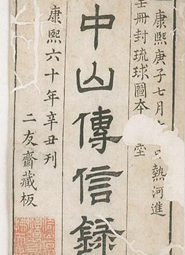 康熙庚子七月
熱河進
呈冊封琉球圖本
堂
中山傳信錄
康熙六十年辛丑刊
二友齋藏板